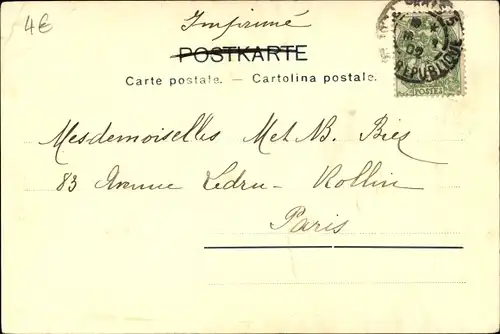 4€
Imprimé
POSTKARTE
Carte postale. — Cartolina postale.
REPUBLIQUE
POSTES
Mesdemoiselles M et B. Bies
83 Avenue Ledru-Rollin
Paris